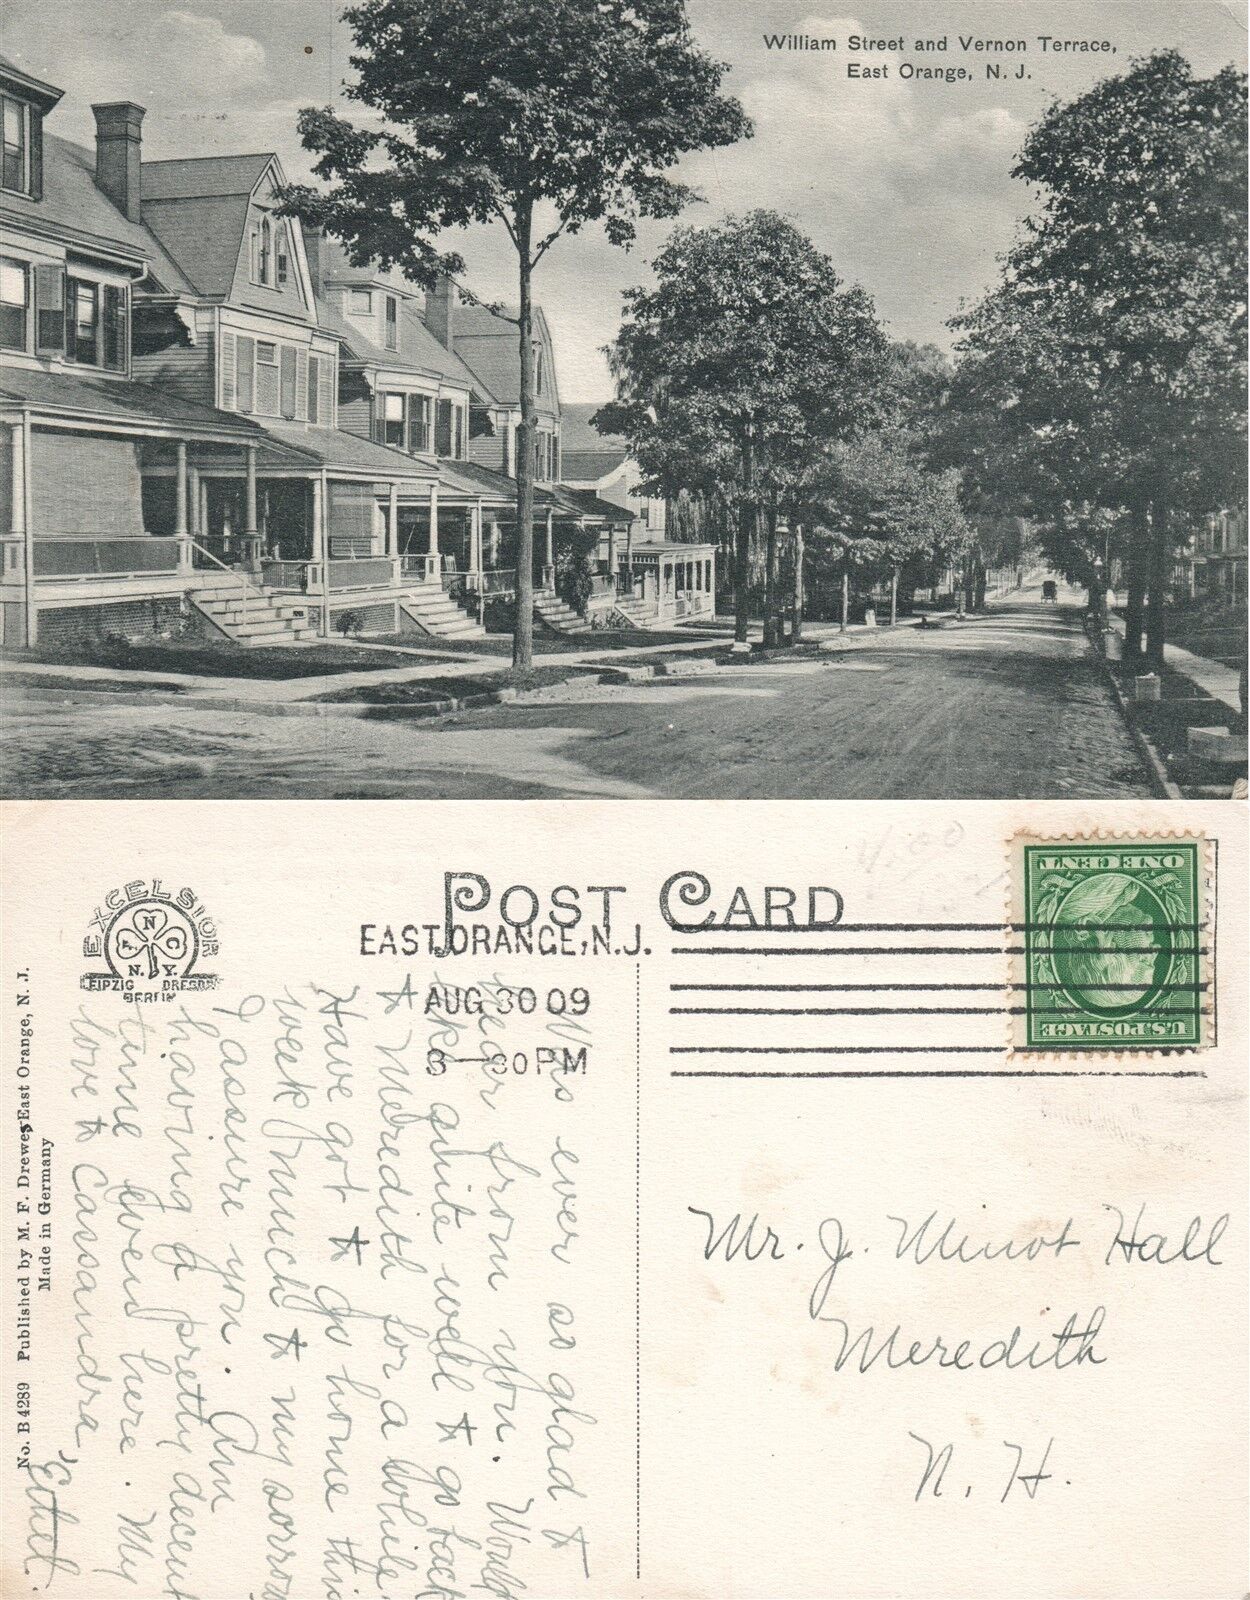 William Street and Vernon Terrace,
East Orange, N. J.
EXCELSIOR
N
Co
N. Y.
LEIPZIG DRESDEN
BERLIN
POST CARD
EAST ORANGE, N.J.
AUG 30 09
8-30PM
ONE CENT
U.S. POSTAGE
No. B 4289 Published by M. F. Drewes East Orange, N. J.
Made in Germany
Was ever so glad to
hear from you. Would
like quite well to go back
to Meredith for a while.
Have got to go home this
week much to my sorrow
I assure you. Am
having a pretty decent
time even here. My
love to Cassandra,
Ethel.
Mr. J. Minot Hall
Meredith
N. H.